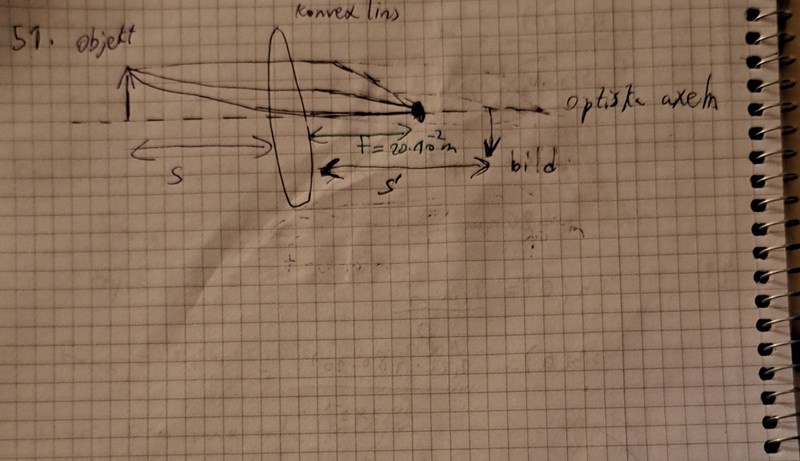 Konvex lins
51. Objekt
Optiska axeln
f = 20·10⁻² m
S
S'
bild